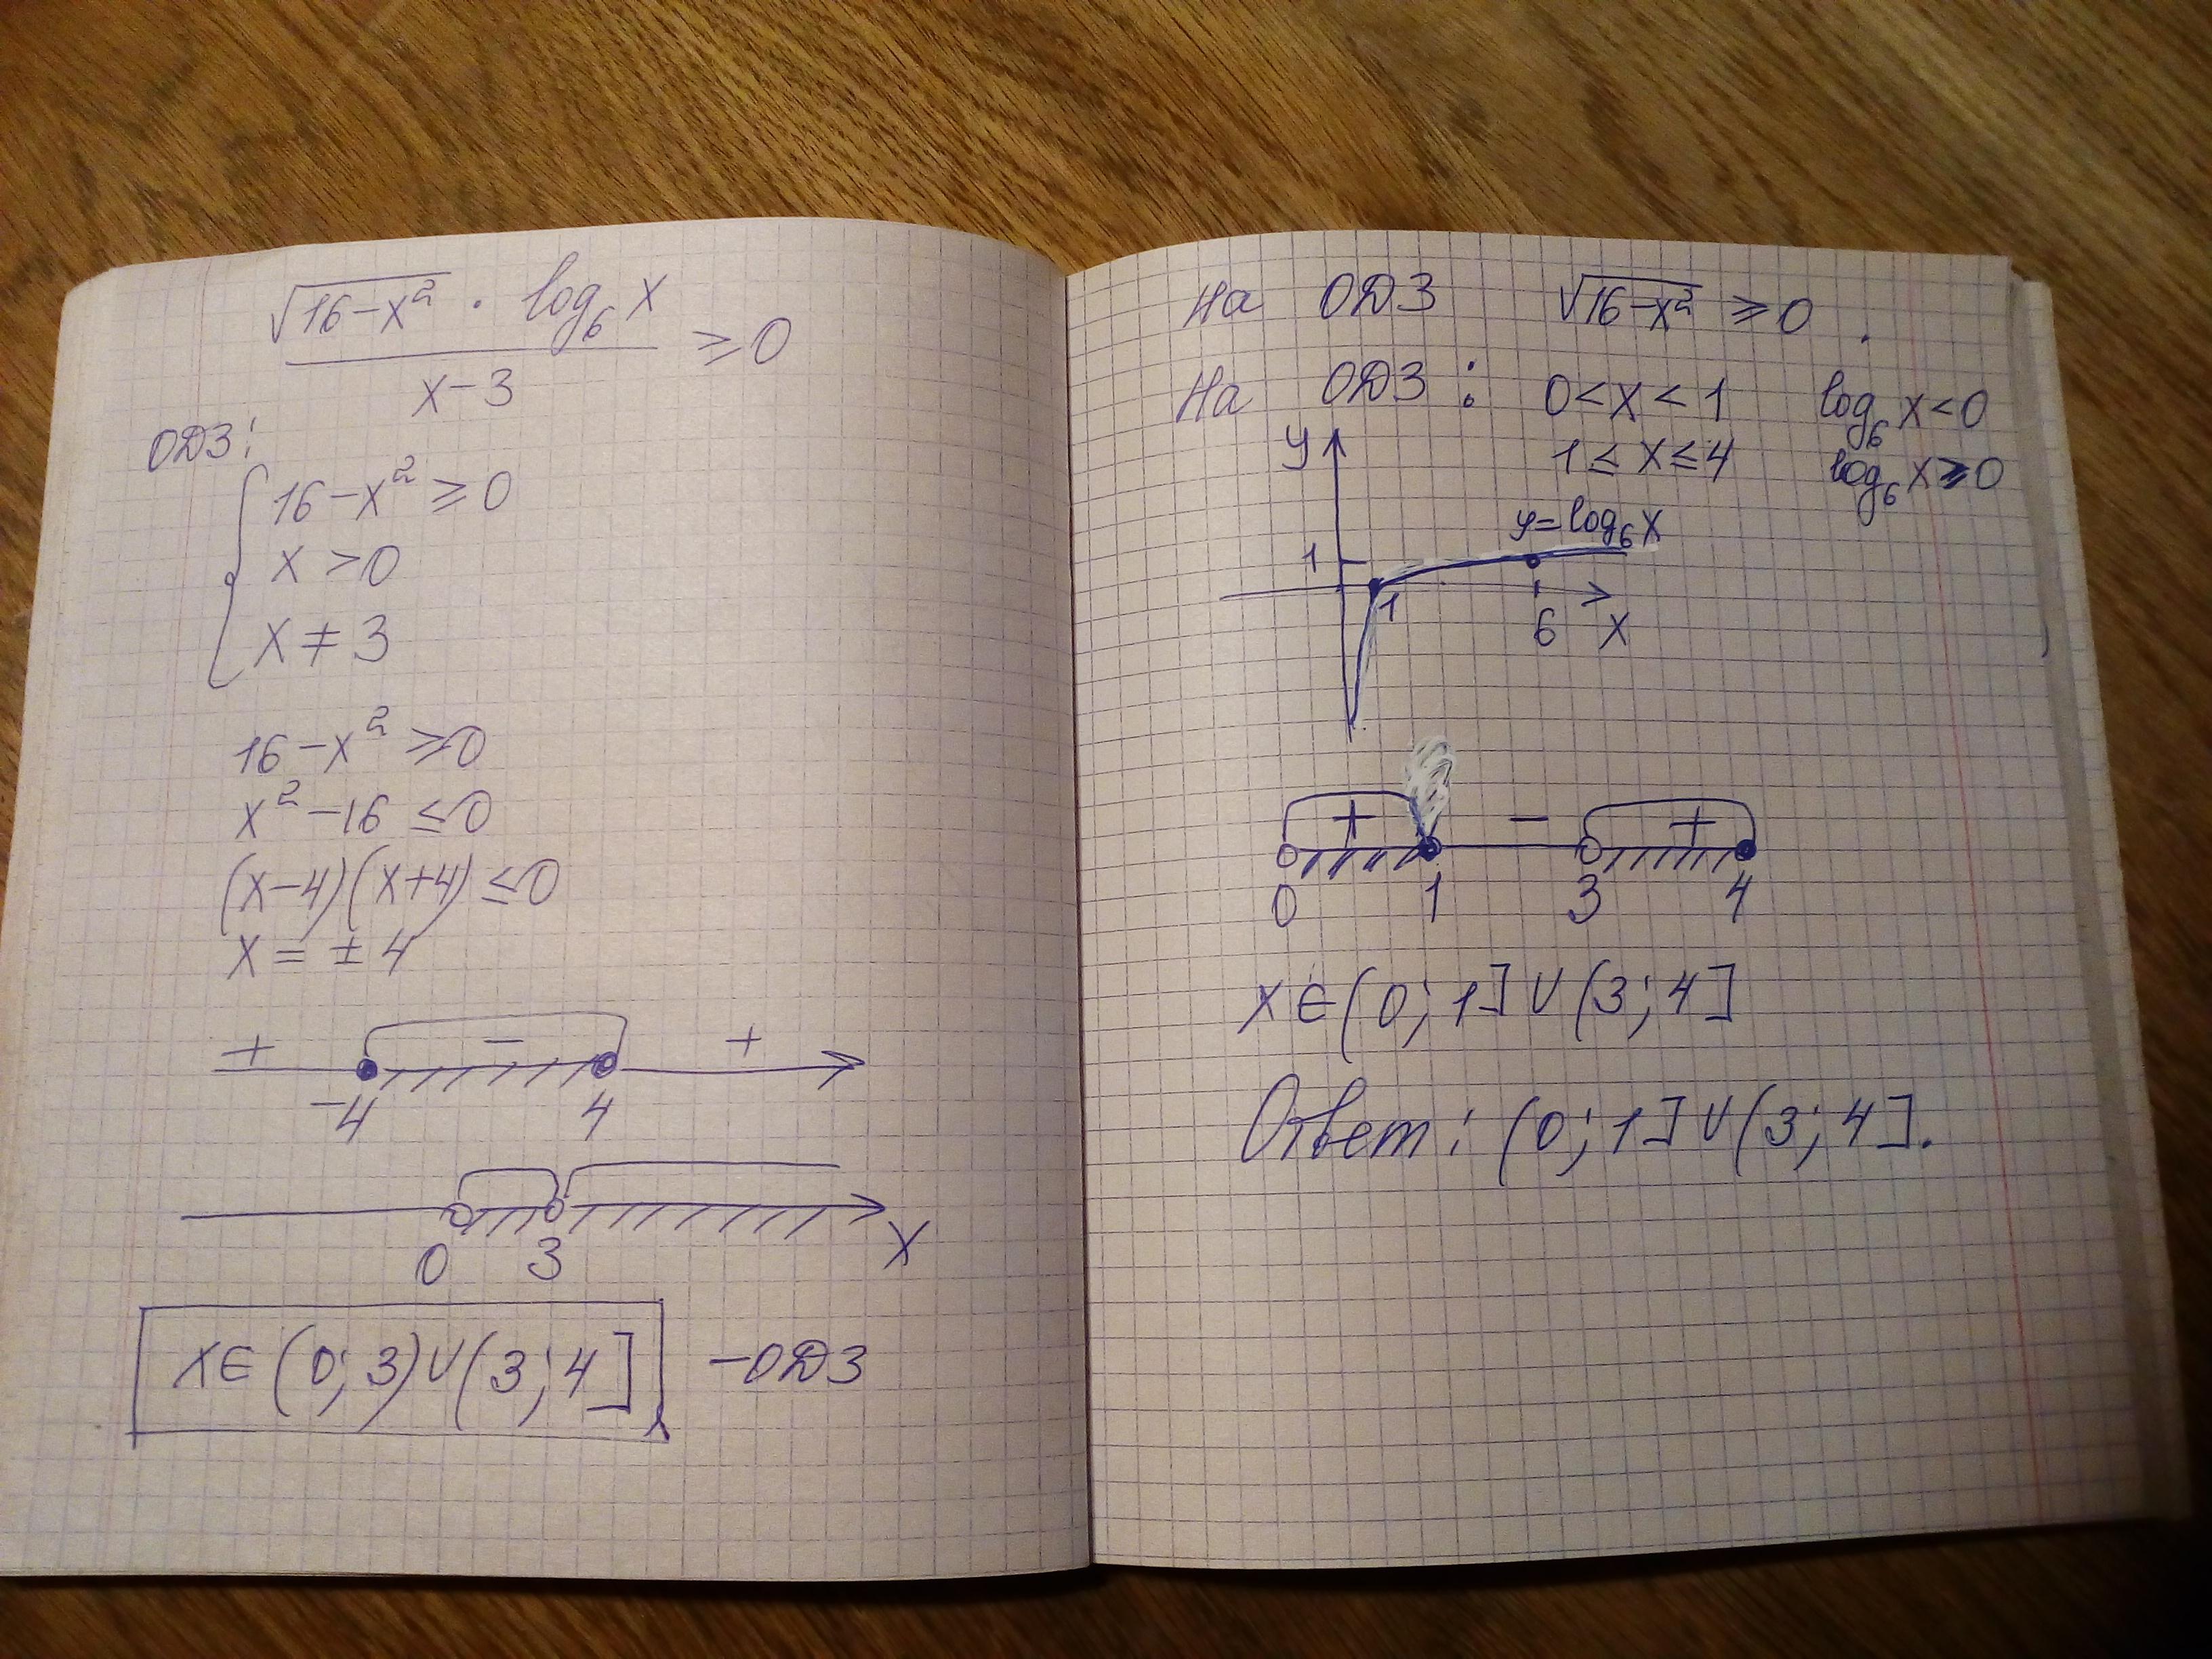 √16-x² · log₆ x
≥0
x-3
ОДЗ:
16-x² ≥0
x >0
x ≠ 3
16-x² ≥0
x²-16 ≤0
(x-4)(x+4)≤0
x = ±4
+ - +
-4 4
0 3 x
x∈(0;3)∪(3;4] -ОДЗ
На ОДЗ √16-x² ≥0.
На ОДЗ: 0<x<1 log₆ x<0
1≤x≤4 log₆ x≥0
y
y=log₆ x
1
1 6 x
+ - +
0 1 3 4
x∈(0;1]∪(3;4]
Ответ: (0;1]∪(3;4].